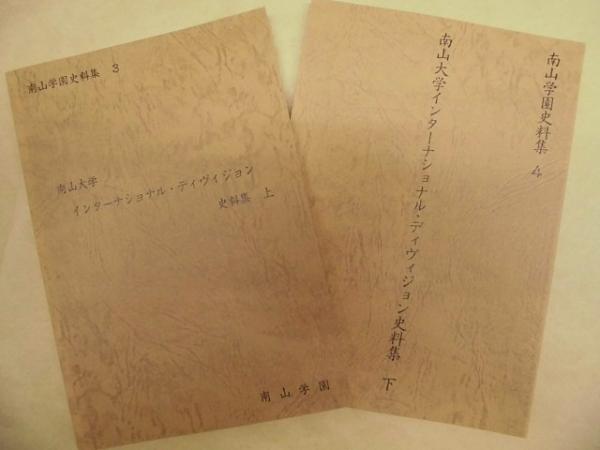 南山学園史料集 3
南山大学
インターナショナル・ディヴィジョン
史料集 上
南山学園
南山学園史料集 4
南山大学インターナショナル・ディヴィジョン史料集 下